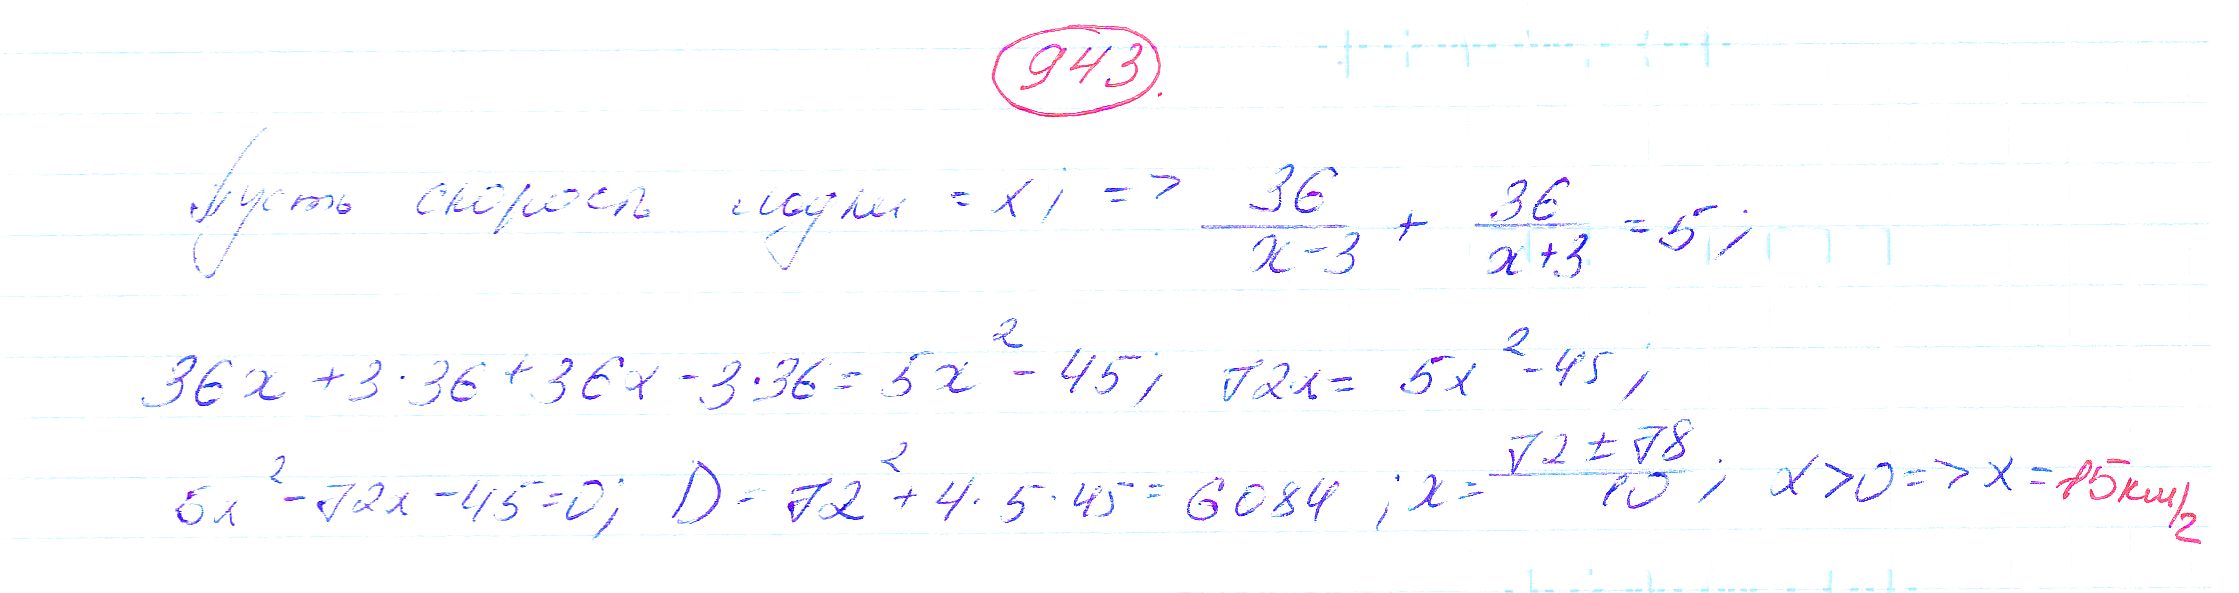 943.
Пусть скорость лодки = x; => 36/(x-3) + 36/(x+3) = 5;
36x + 3·36 + 36x - 3·36 = 5x² - 45; 72x = 5x² - 45;
5x² - 72x - 45 = 0; D = 72² + 4·5·45 = 6084; x = (72 ± 78)/10; x > 0 => x = 15 км/ч